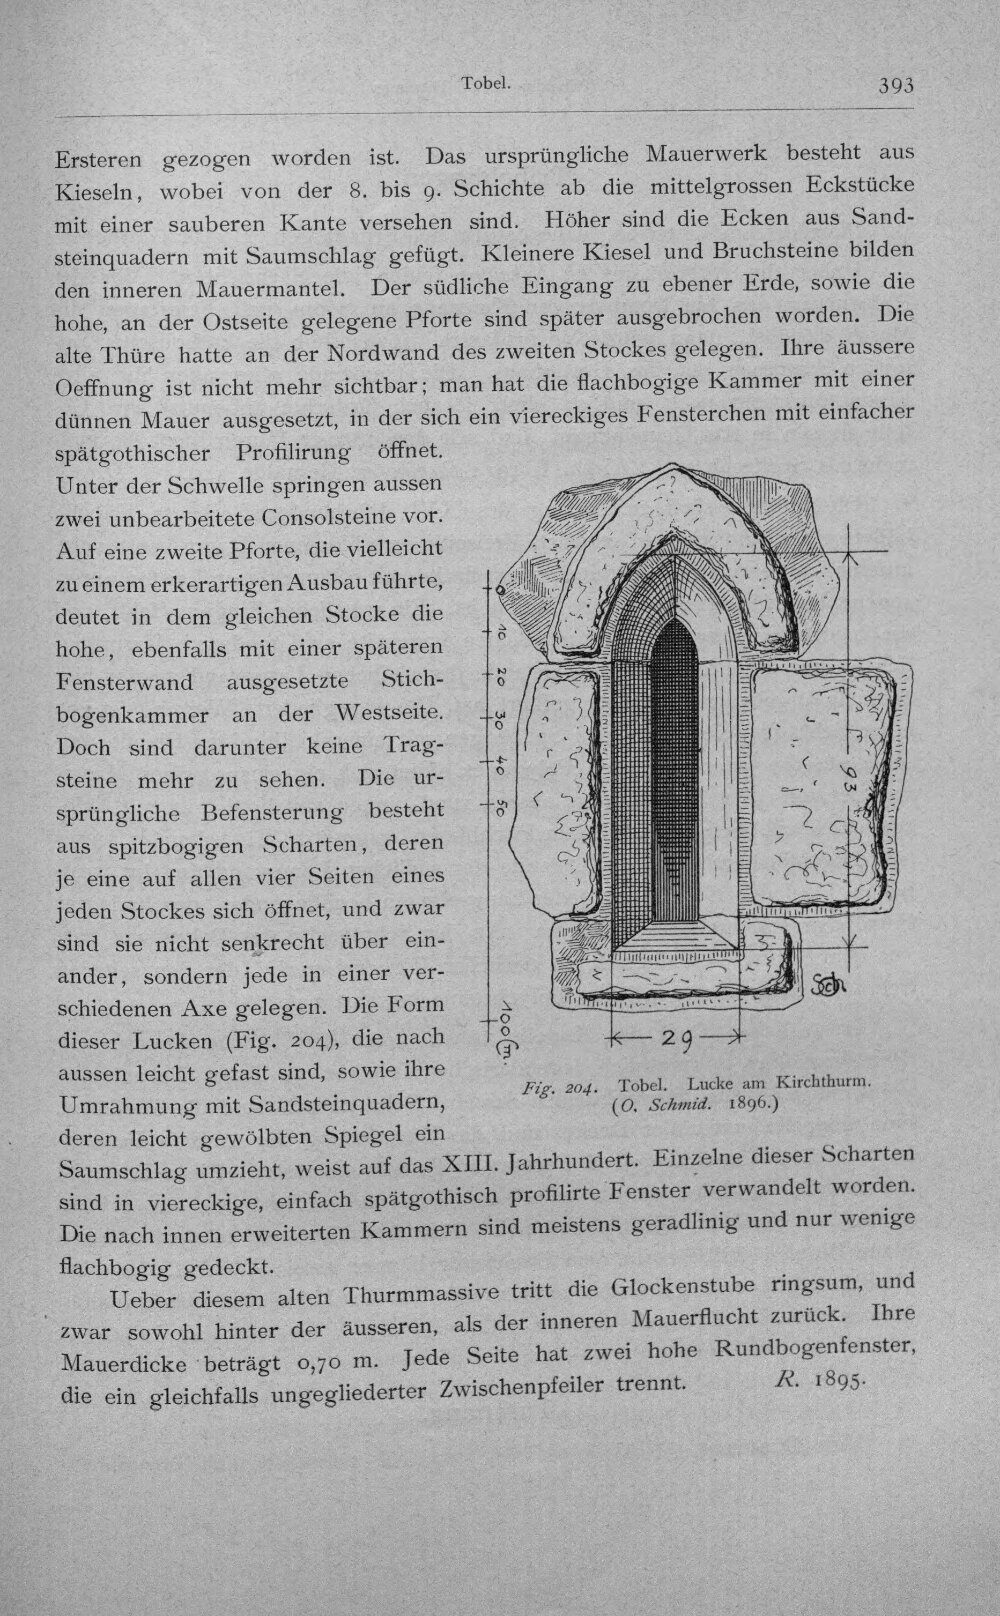 Tobel.
393
Ersteren gezogen worden ist. Das ursprüngliche Mauerwerk besteht aus
Kieseln, wobei von der 8. bis 9. Schichte ab die mittelgrossen Eckstücke
mit einer sauberen Kante versehen sind. Höher sind die Ecken aus Sand-
steinquadern mit Saumschlag gefügt. Kleinere Kiesel und Bruchsteine bilden
den inneren Mauermantel. Der südliche Eingang zu ebener Erde, sowie die
hohe, an der Ostseite gelegene Pforte sind später ausgebrochen worden. Die
alte Thüre hatte an der Nordwand des zweiten Stockes gelegen. Ihre äussere
Oeffnung ist nicht mehr sichtbar; man hat die flachbogige Kammer mit einer
dünnen Mauer ausgesetzt, in der sich ein viereckiges Fensterchen mit einfacher
spätgothischer Profilirung öffnet.
Unter der Schwelle springen aussen
zwei unbearbeitete Consolsteine vor.
Auf eine zweite Pforte, die vielleicht
zu einem erkerartigen Ausbau führte,
deutet in dem gleichen Stocke die
hohe, ebenfalls mit einer späteren
Fensterwand ausgesetzte Stich-
bogenkammer an der Westseite.
Doch sind darunter keine Trag-
steine mehr zu sehen. Die ur-
sprüngliche Befensterung besteht
aus spitzbogigen Scharten, deren
je eine auf allen vier Seiten eines
jeden Stockes sich öffnet, und zwar
sind sie nicht senkrecht über ein-
ander, sondern jede in einer ver-
schiedenen Axe gelegen. Die Form
dieser Lucken (Fig. 204), die nach
aussen leicht gefast sind, sowie ihre
Umrahmung mit Sandsteinquadern,
deren leicht gewölbten Spiegel ein
0
10
20
30
40
50
100 Cm.
93
29
Sch
Fig. 204. Tobel. Lucke am Kirchthurm.
(O. Schmid. 1896.)
Saumschlag umzieht, weist auf das XIII. Jahrhundert. Einzelne dieser Scharten
sind in viereckige, einfach spätgothisch profilirte Fenster verwandelt worden.
Die nach innen erweiterten Kammern sind meistens geradlinig und nur wenige
flachbogig gedeckt.
Ueber diesem alten Thurmmassive tritt die Glockenstube ringsum, und
zwar sowohl hinter der äusseren, als der inneren Mauerflucht zurück. Ihre
Mauerdicke beträgt 0,70 m. Jede Seite hat zwei hohe Rundbogenfenster,
die ein gleichfalls ungegliederter Zwischenpfeiler trennt. R. 1895.